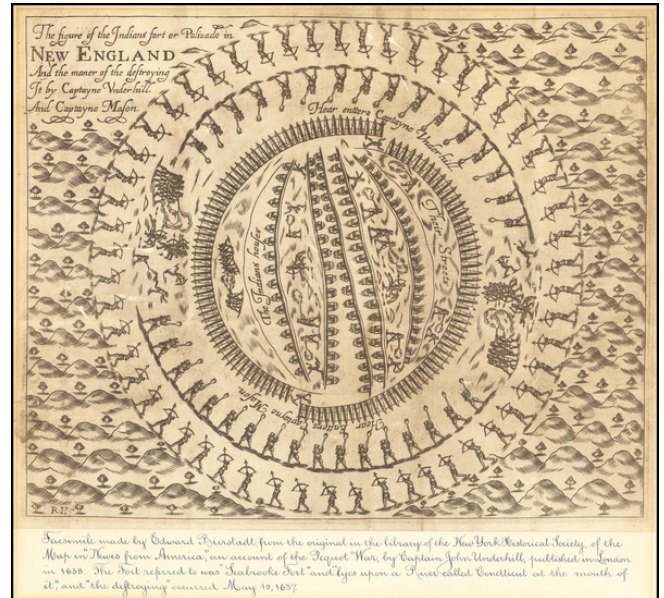 The figure of the Indians fort or Palizado in
NEW ENGLAND
And the maner of the destroying
It by Captayne Vnderhill
And Captayne Mason
Hear entters Captayne Vnderhill
The Indians houses
Their Streets
Hear Entters Captayne Mason
RH
Facsimile made by Edward Bierstadt from the original in the library of the New York Historical Society, of the
Map in "Newes from America," an account of the Pequot War, by Captain John Underhill, published in London
in 1638. The Fort referred to was "Seabrooke Fort" and "lyes upon a River called Conetticut at the mouth of
it," and "the destroying" occurred May 19, 1637